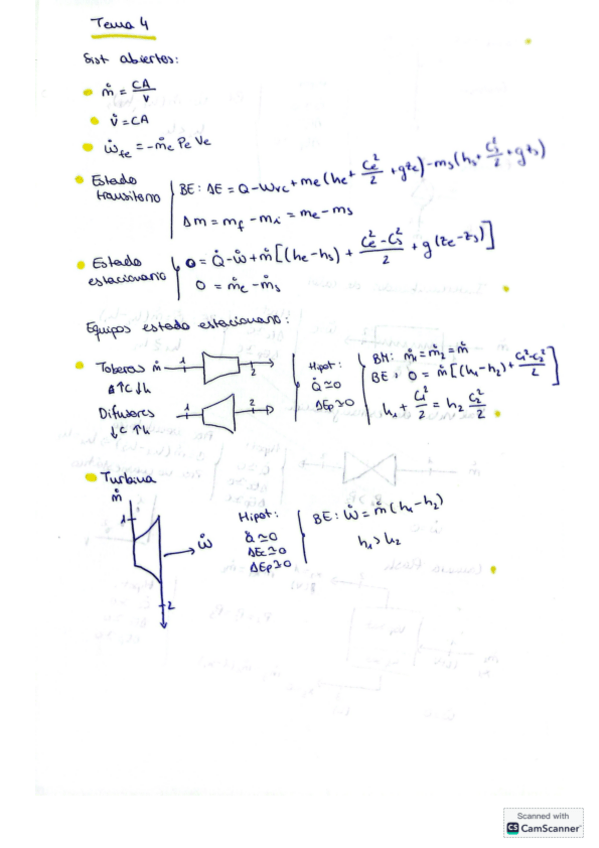 Tema 4
Sist abiertos:
ṁ = CA/v
V̇ = CA
Ẇfe = -ṁe Pe Ve
Estado transitorio
BE: ΔE = Q - Wvc + me (he + Ce²/2 + gze) - ms (hs + Cs²/2 + gzs)
Δm = mf - mi = me - ms
Estado estacionario
0 = Q̇ - Ẇ + ṁ [(he - hs) + (Ce² - Cs²)/2 + g(ze - zs)]
0 = ṁe - ṁs
Equipos estado estacionario:
Toberas ṁ 1 2
↑C ↓h
Difusores 1 2
↓C ↑h
Hipot:
Q̇ ≃ 0
ΔEp ≃ 0
BM: ṁ1 = ṁ2 = ṁ
BE: 0 = ṁ [(h1 - h2) + (C1² - C2²)/2]
h1 + C1²/2 = h2 C2²/2
Turbina
ṁ
1
Ẇ
2
Hipot:
Q̇ ≃ 0
ΔEc ≃ 0
ΔEp ≃ 0
BE: Ẇ = ṁ (h1 - h2)
h1 > h2
Scanned with
CS CamScanner